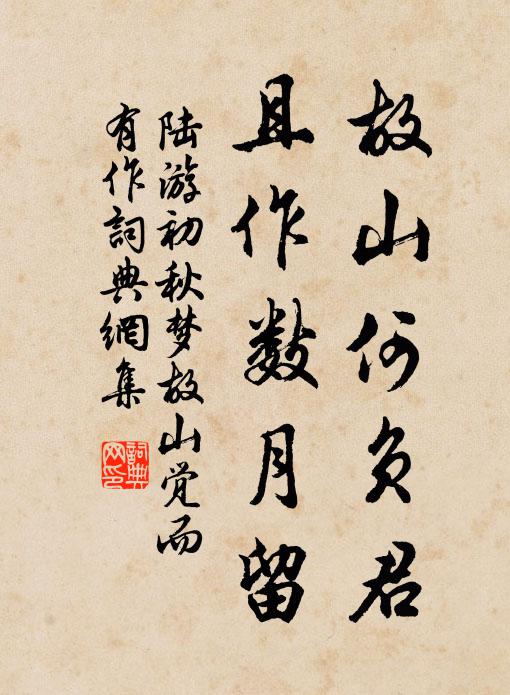 故山何负君
且作数月留
陆游初秋梦故山觉而
有作詞典網集
詞典
网印